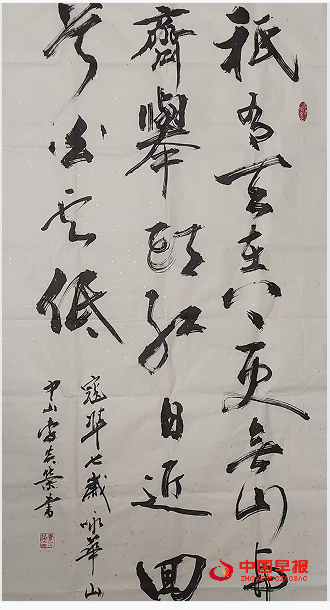 祇有天在上更無山與
齊舉頭紅日近回
首白雲低
寇準七歲咏華山
中山 榮書
中国早报
ZHONGGUOZAOBAO